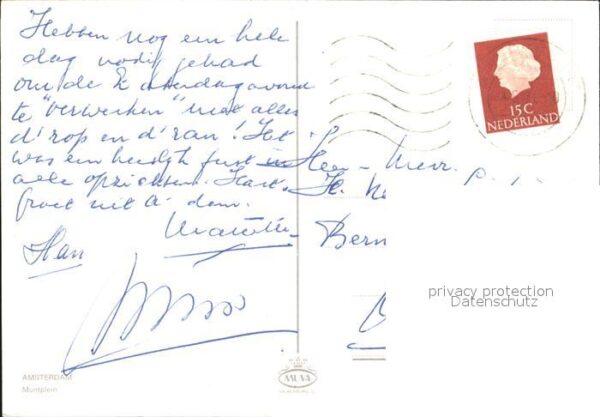 Hebben nog een hele
dag nodig gehad
om de zaterdagavond
te "verwerken" met alles
d'rop en d'ran! Het
was een heerlijk feest in
alle opzichten. Hart.
groet uit A'dam.
Han
15 C
NEDERLAND
Heer - Mevr.
Bern
privacy protection
Datenschutz
AMSTERDAM
Muntplein
MUVA